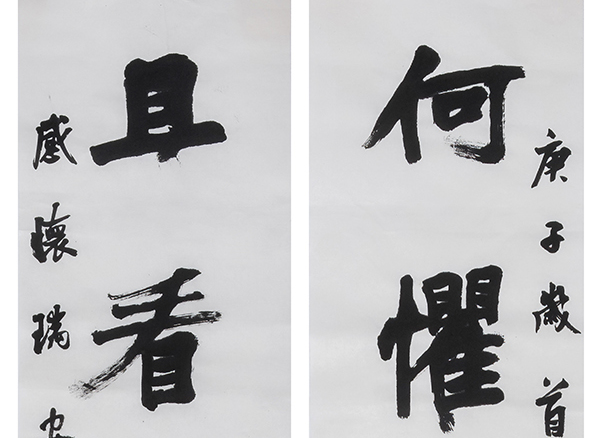 庚子歲首
何懼
且看
感懷瑞安